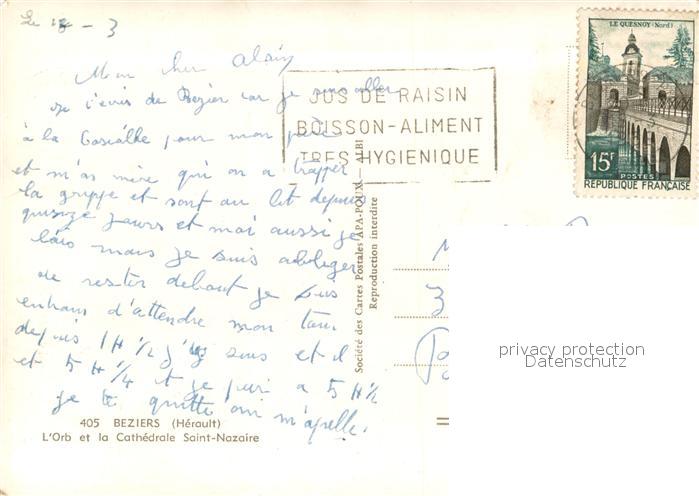 Le 18 - 3
Mon cher Alain
je t'ecris de Bezier car je suis aller
à la pour mon
et m'as mère qui on a trapper
la grippe et sont au lit depuis
quinze jours et moi aussi je
mais je suis obliger
de rester debout je suis
d'attendre mon
depuis 1H 1/2 suis et il
et 5 H 1/4 et je a 5 H 1/2
je te quitte on m'apelle.
JUS DE RAISIN
BOISSON-ALIMENT
TRES HYGIENIQUE
LE QUESNOY (Nord)
15F
POSTES
RÉPUBLIQUE FRANÇAISE
Société des Cartes Postales APA-POUX — ALBI
Reproduction interdite
M
3
privacy protection
Datenschutz
405 BEZIERS (Hérault)
L'Orb et la Cathédrale Saint-Nazaire